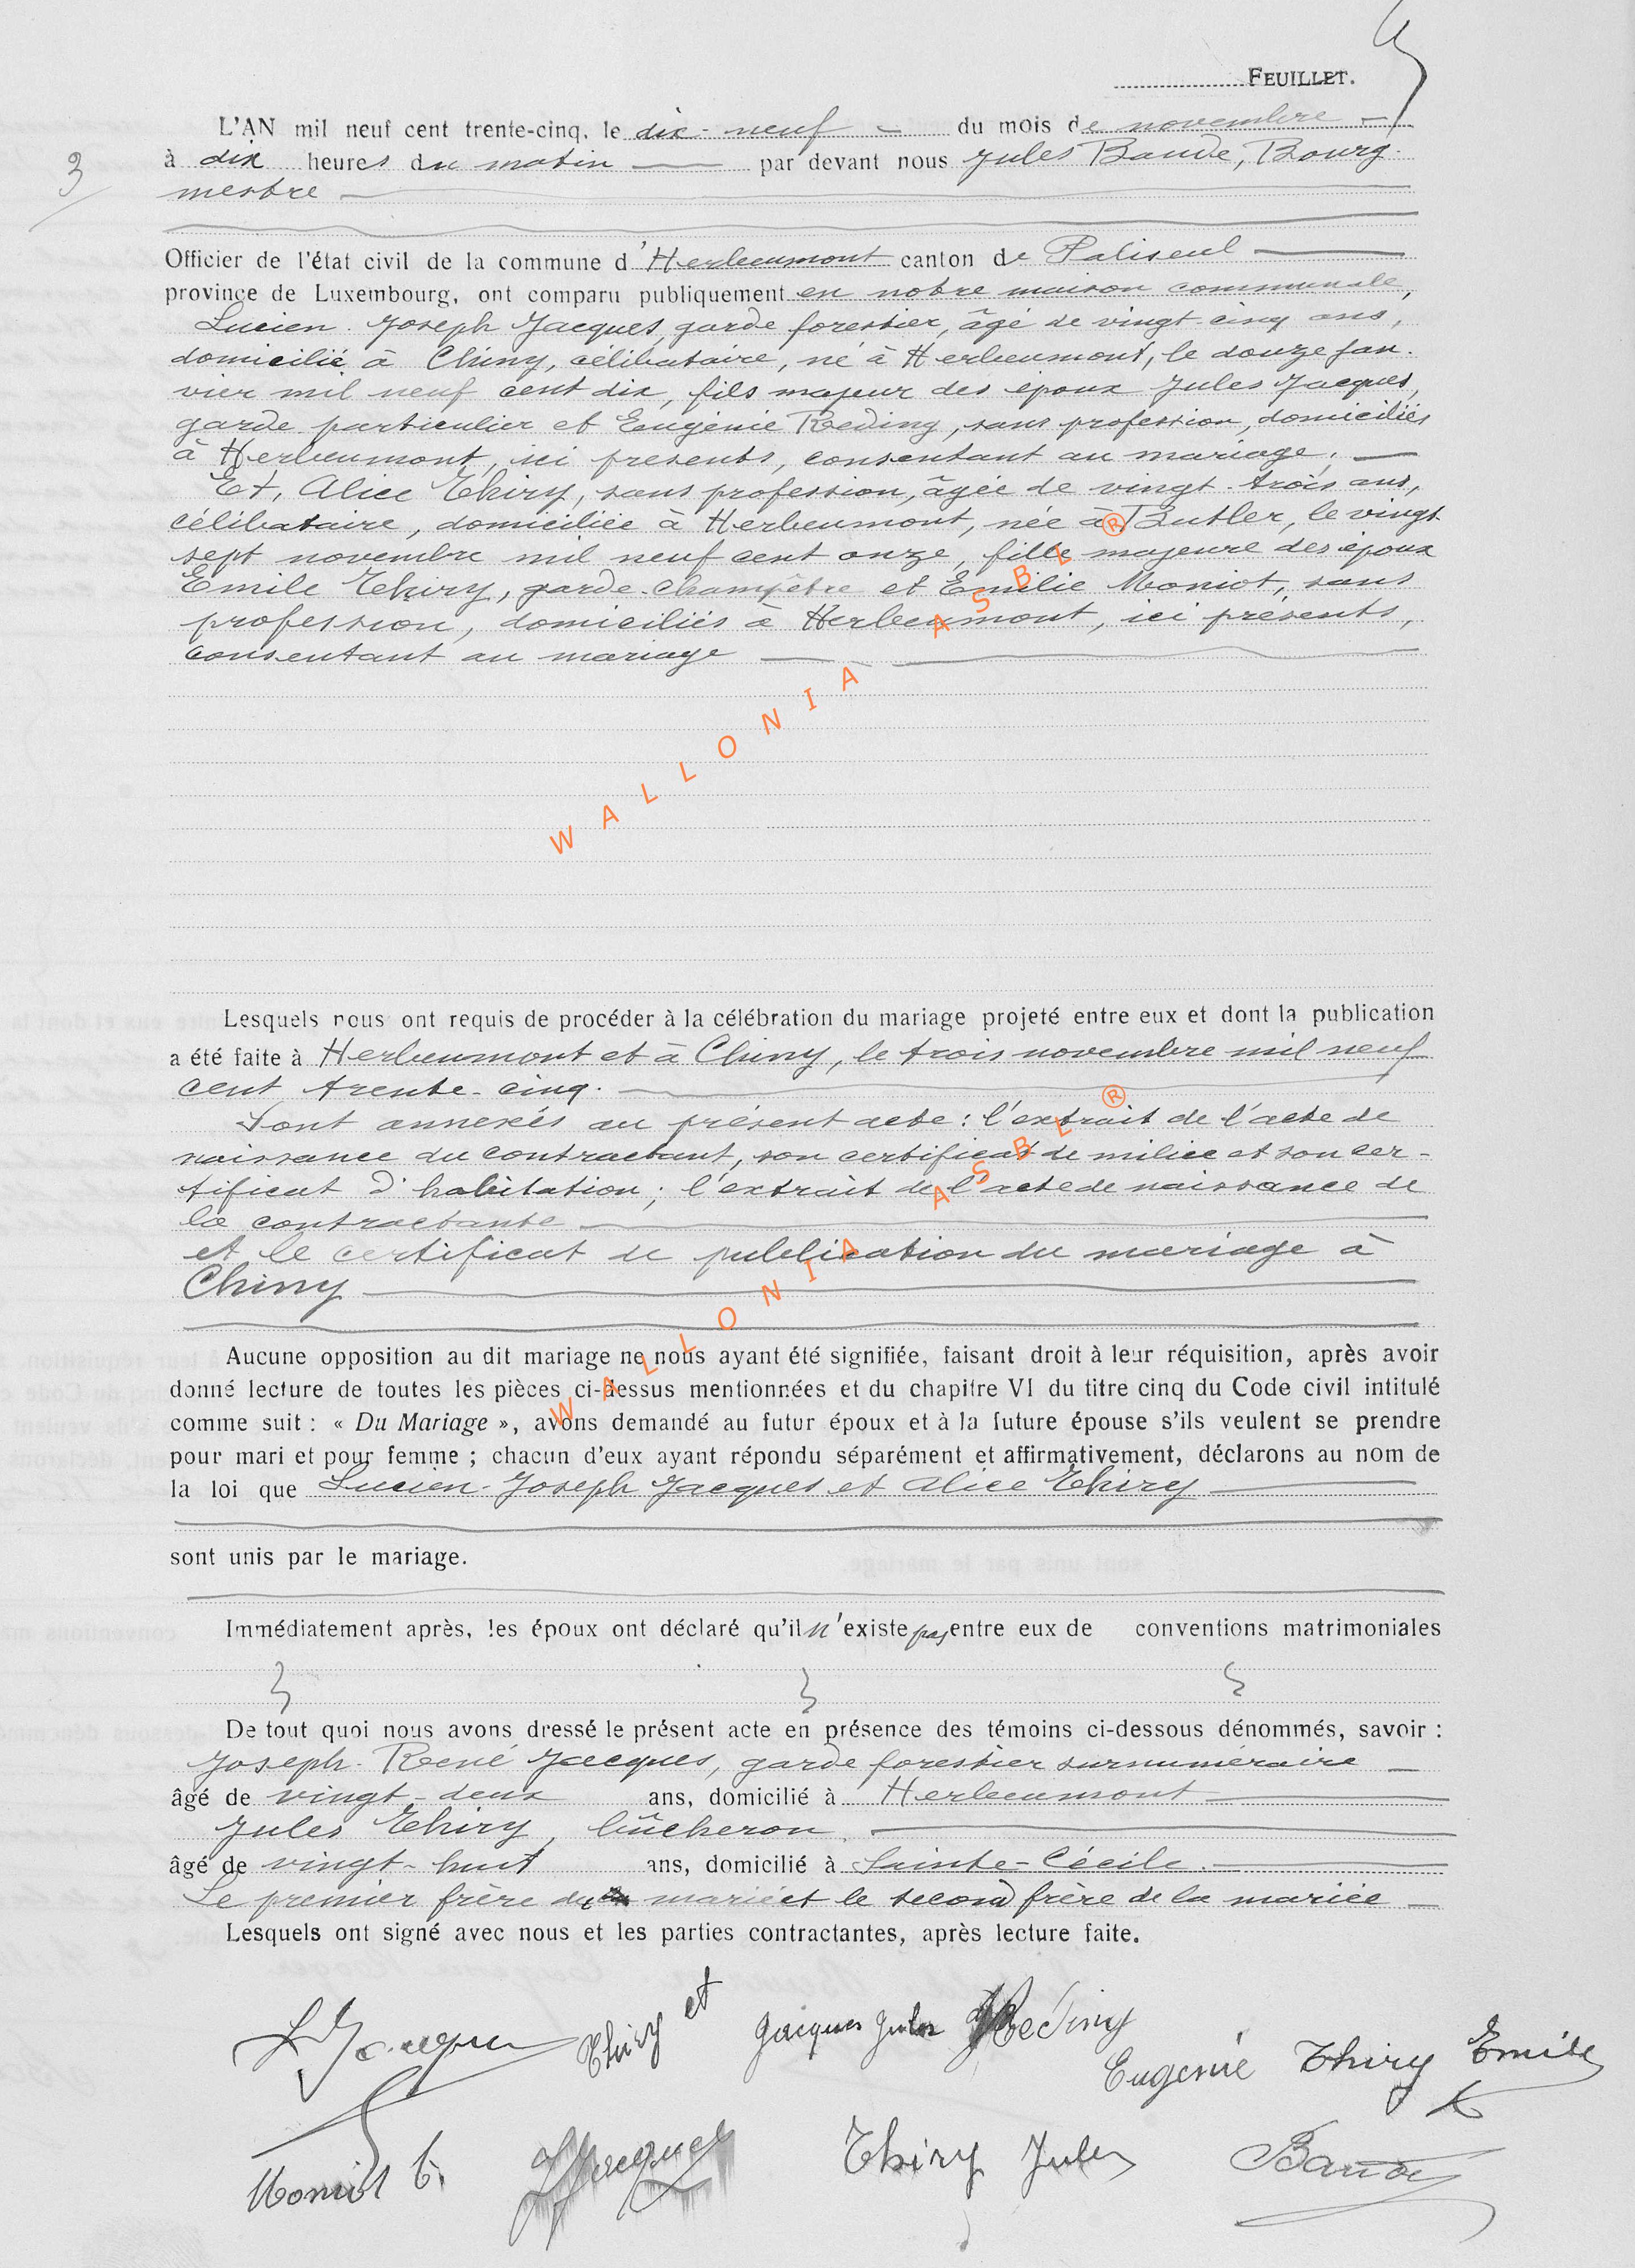 5
FEUILLET.
3
L'AN mil neuf cent trente-cinq, le dix-neuf du mois de novembre
à dix heures du matin par devant nous Jules Baude, Bourg-
mestre
Officier de l'état civil de la commune d'Herbeumont canton de Paliseul
province de Luxembourg, ont comparu publiquement en notre maison communale,
Lucien-Joseph Jacques, garde forestier, âgé de vingt-cinq ans,
domicilié à Chiny, célibataire, né à Herbeumont, le douze jan-
vier mil neuf cent dix, fils majeur des époux Jules Jacques,
garde particulier et Eugénie Reding, sans profession, domiciliés
à Herbeumont, ici présents, consentant au mariage.
Et, Alice Thiry, sans profession, âgée de vingt-trois ans,
célibataire, domiciliée à Herbeumont, née à Butler, le vingt-
sept novembre mil neuf cent onze, fille majeure des époux
Emile Thiry, garde-champêtre et Emilie Moniot, sans
profession, domiciliés à Herbeumont, ici présents,
consentant au mariage
WALLONIA ASBL ®
Lesquels nous ont requis de procéder à la célébration du mariage projeté entre eux et dont la publication
a été faite à Herbeumont et à Chiny, le trois novembre mil neuf
cent trente-cinq.
Sont annexés au présent acte : l'extrait de l'acte de
naissance du contractant, son certificat de milice et son cer-
tificat d'habitation ; l'extrait de l'acte de naissance de
la contractante
et le certificat de publication du mariage à
Chiny
WALLONIA ASBL ®
Aucune opposition au dit mariage ne nous ayant été signifiée, faisant droit à leur réquisition, après avoir
donné lecture de toutes les pièces ci-dessus mentionnées et du chapitre VI du titre cinq du Code civil intitulé
comme suit : « Du Mariage », avons demandé au futur époux et à la future épouse s'ils veulent se prendre
pour mari et pour femme ; chacun d'eux ayant répondu séparément et affirmativement, déclarons au nom de
la loi que Lucien-Joseph Jacques et Alice Thiry
sont unis par le mariage.
Immédiatement après, les époux ont déclaré qu'il n'existe pas entre eux de conventions matrimoniales
De tout quoi nous avons dressé le présent acte en présence des témoins ci-dessous dénommés, savoir :
Joseph-René Jacques, garde forestier surnuméraire
âgé de vingt-deux ans, domicilié à Herbeumont
Jules Thiry, bûcheron,
âgé de vingt-huit ans, domicilié à Sainte-Cécile.
Le premier frère du marié et le second frère de la mariée
Lesquels ont signé avec nous et les parties contractantes, après lecture faite.
L Jacques Thiry et Jacques Jules Reding
Eugenie Thiry Emile
Moniot E. Jacques Thiry Jules Baude